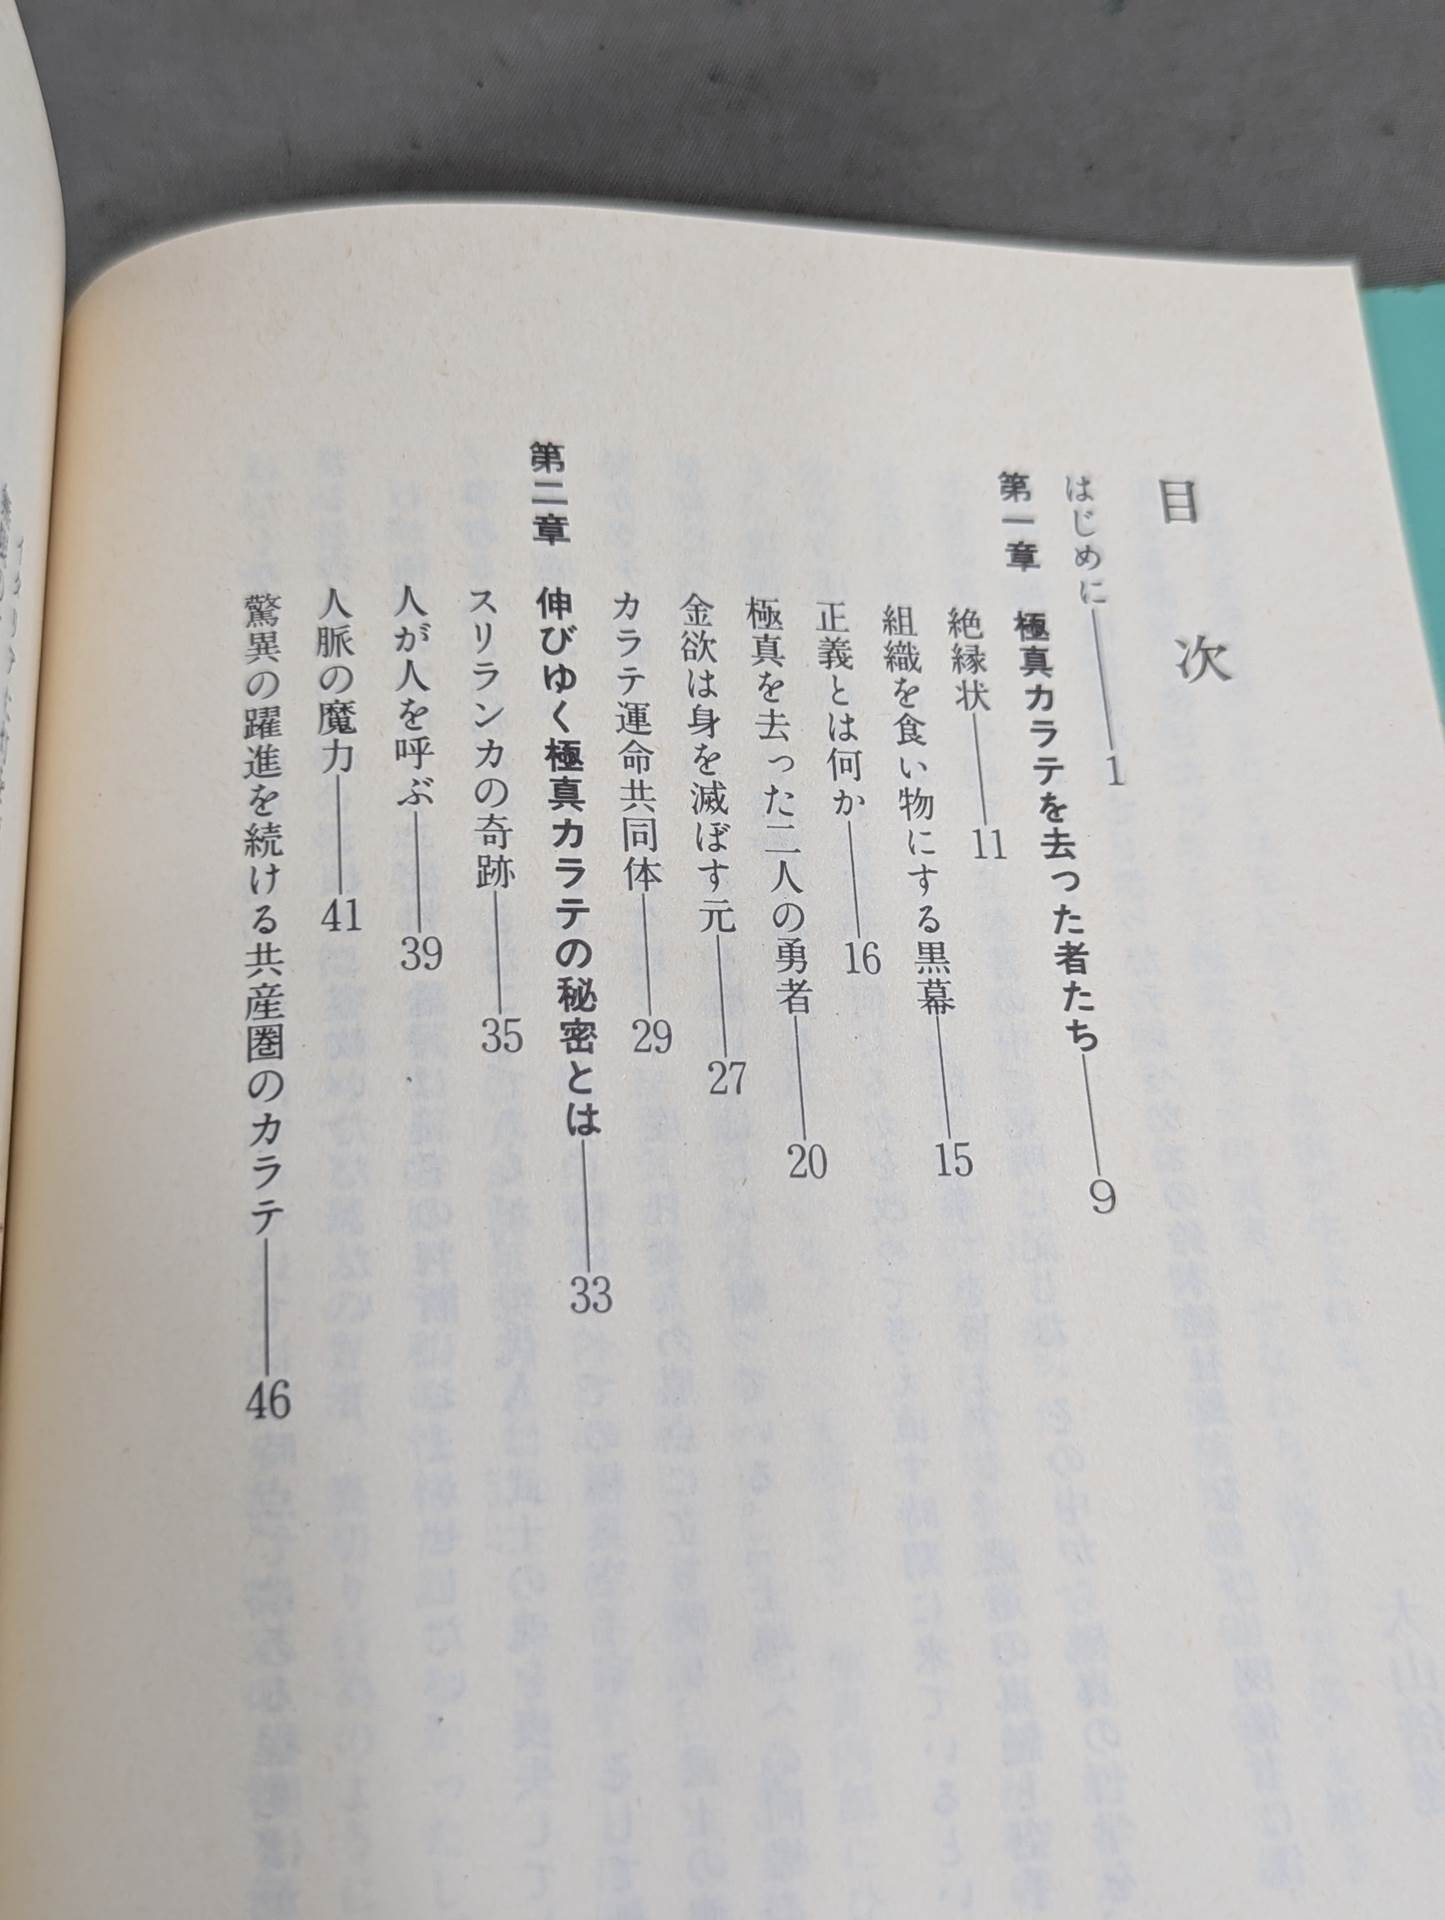 目次
はじめに――1
第一章　極真カラテを去った者たち――9
絶縁状――11
組織を食い物にする黒幕――15
正義とは何か――16
極真を去った二人の勇者――20
金欲は身を滅ぼす元――27
カラテ運命共同体――29
第二章　伸びゆく極真カラテの秘密とは――33
スリランカの奇跡――35
人が人を呼ぶ――39
人脈の魔力――41
驚異の躍進を続ける共産圏のカラテ――46